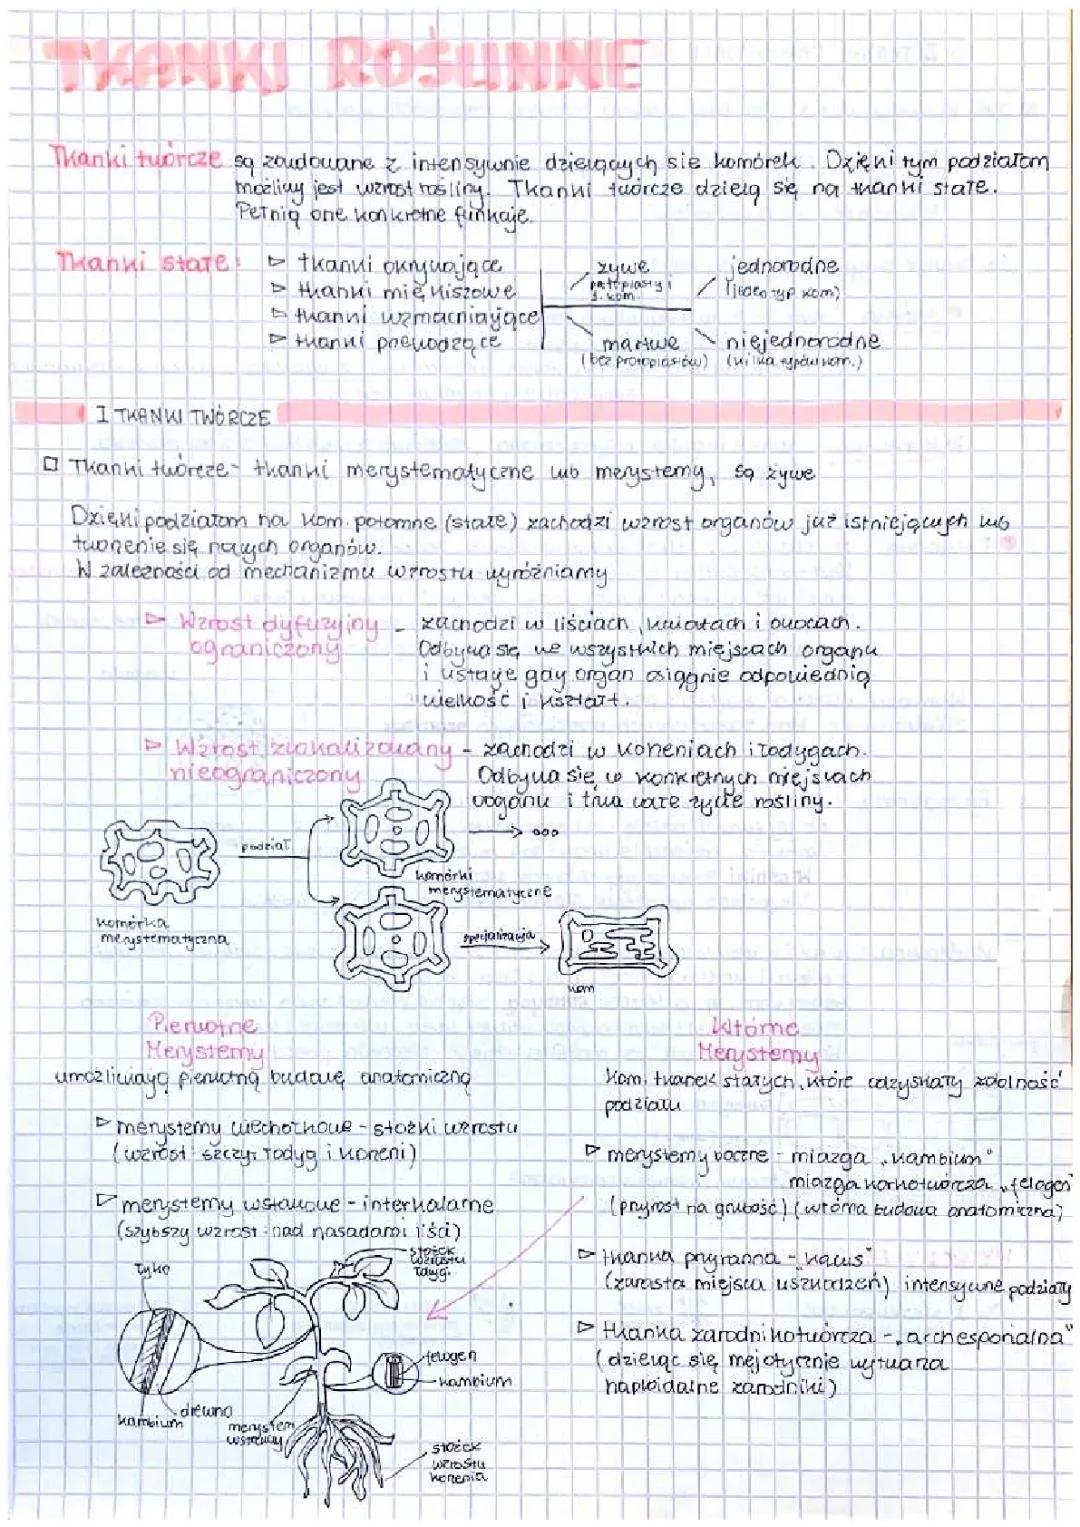 TKANKI ROŚLINNE
Tkanki twórcze są zbudowane z intensywnie dzielących się komórek. Dzięki tym podziałom
możliwy jest wzrost rośliny. Tkanki twórcze dzielą się na tkanki stałe.
Pełnią one konkretne funkcje.
Tkanki stałe: ▷ tkanki okrywające
▷ tkanki miękiszowe
▷ tkanki wzmacniające
▷ tkanki przewodzące
żywe
protoplasty i
ś. kom.
martwe
(bez protoplastów)
jednorodne
(jeden typ kom)
niejednorodne
(kilka typów kom.)
I TKANKI TWÓRCZE
□ Tkanki twórcze - tkanki merystematyczne lub merystemy, są żywe
Dzięki podziałom na kom. potomne (stałe) zachodzi wzrost organów już istniejących lub
tworzenie się nowych organów.
W zależności od mechanizmu wzrostu wyróżniamy
▷ Wzrost dyfuzyjny - zachodzi w liściach, kwiatach i owocach.
ograniczony Odbywa się we wszystkich miejscach organu
i ustaje gdy organ osiągnie odpowiednią
wielkość i kształt.
▷ Wzrost zlokalizowany - zachodzi w korzeniach i łodygach.
nieograniczony Odbywa się w konkretnych miejscach
organu i trwa całe życie rośliny.
podział
komórki
merystematyczne
komórka
merystematyczna
specjalizacja
kom
Pierwotne
Merystemy
umożliwiają pierwotną budowę anatomiczną
▷ merystemy wierzchołkowe - stożki wzrostu
(wzrost szczyt. łodyg i korzeni)
▷ merystemy wstawowe - interkalarne
(szybszy wzrost nad nasadami liści)
Wtórne
Merystemy
Kom. tkanek stałych, które odzyskały zdolność
podziału
▷ merystemy boczne - miazga „kambium"
miazga korkotwórcza „felogen
(przyrost na grubość) (wtórna budowa anatomiczna)
▷ tkanka przyranna - „kalus"
(zarasta miejsca uszkodzeń) intensywne podziały
▷ tkanka zarodnikotwórcza - „archesporialna"
(dzieląc się mejotycznie wytwarza
haploidalne zarodniki)
łyko
kambium
drewno
stożek
wzrostu
łodygi
felogen
kambium
merystem
wstawowy
stożek
wzrostu
korzenia